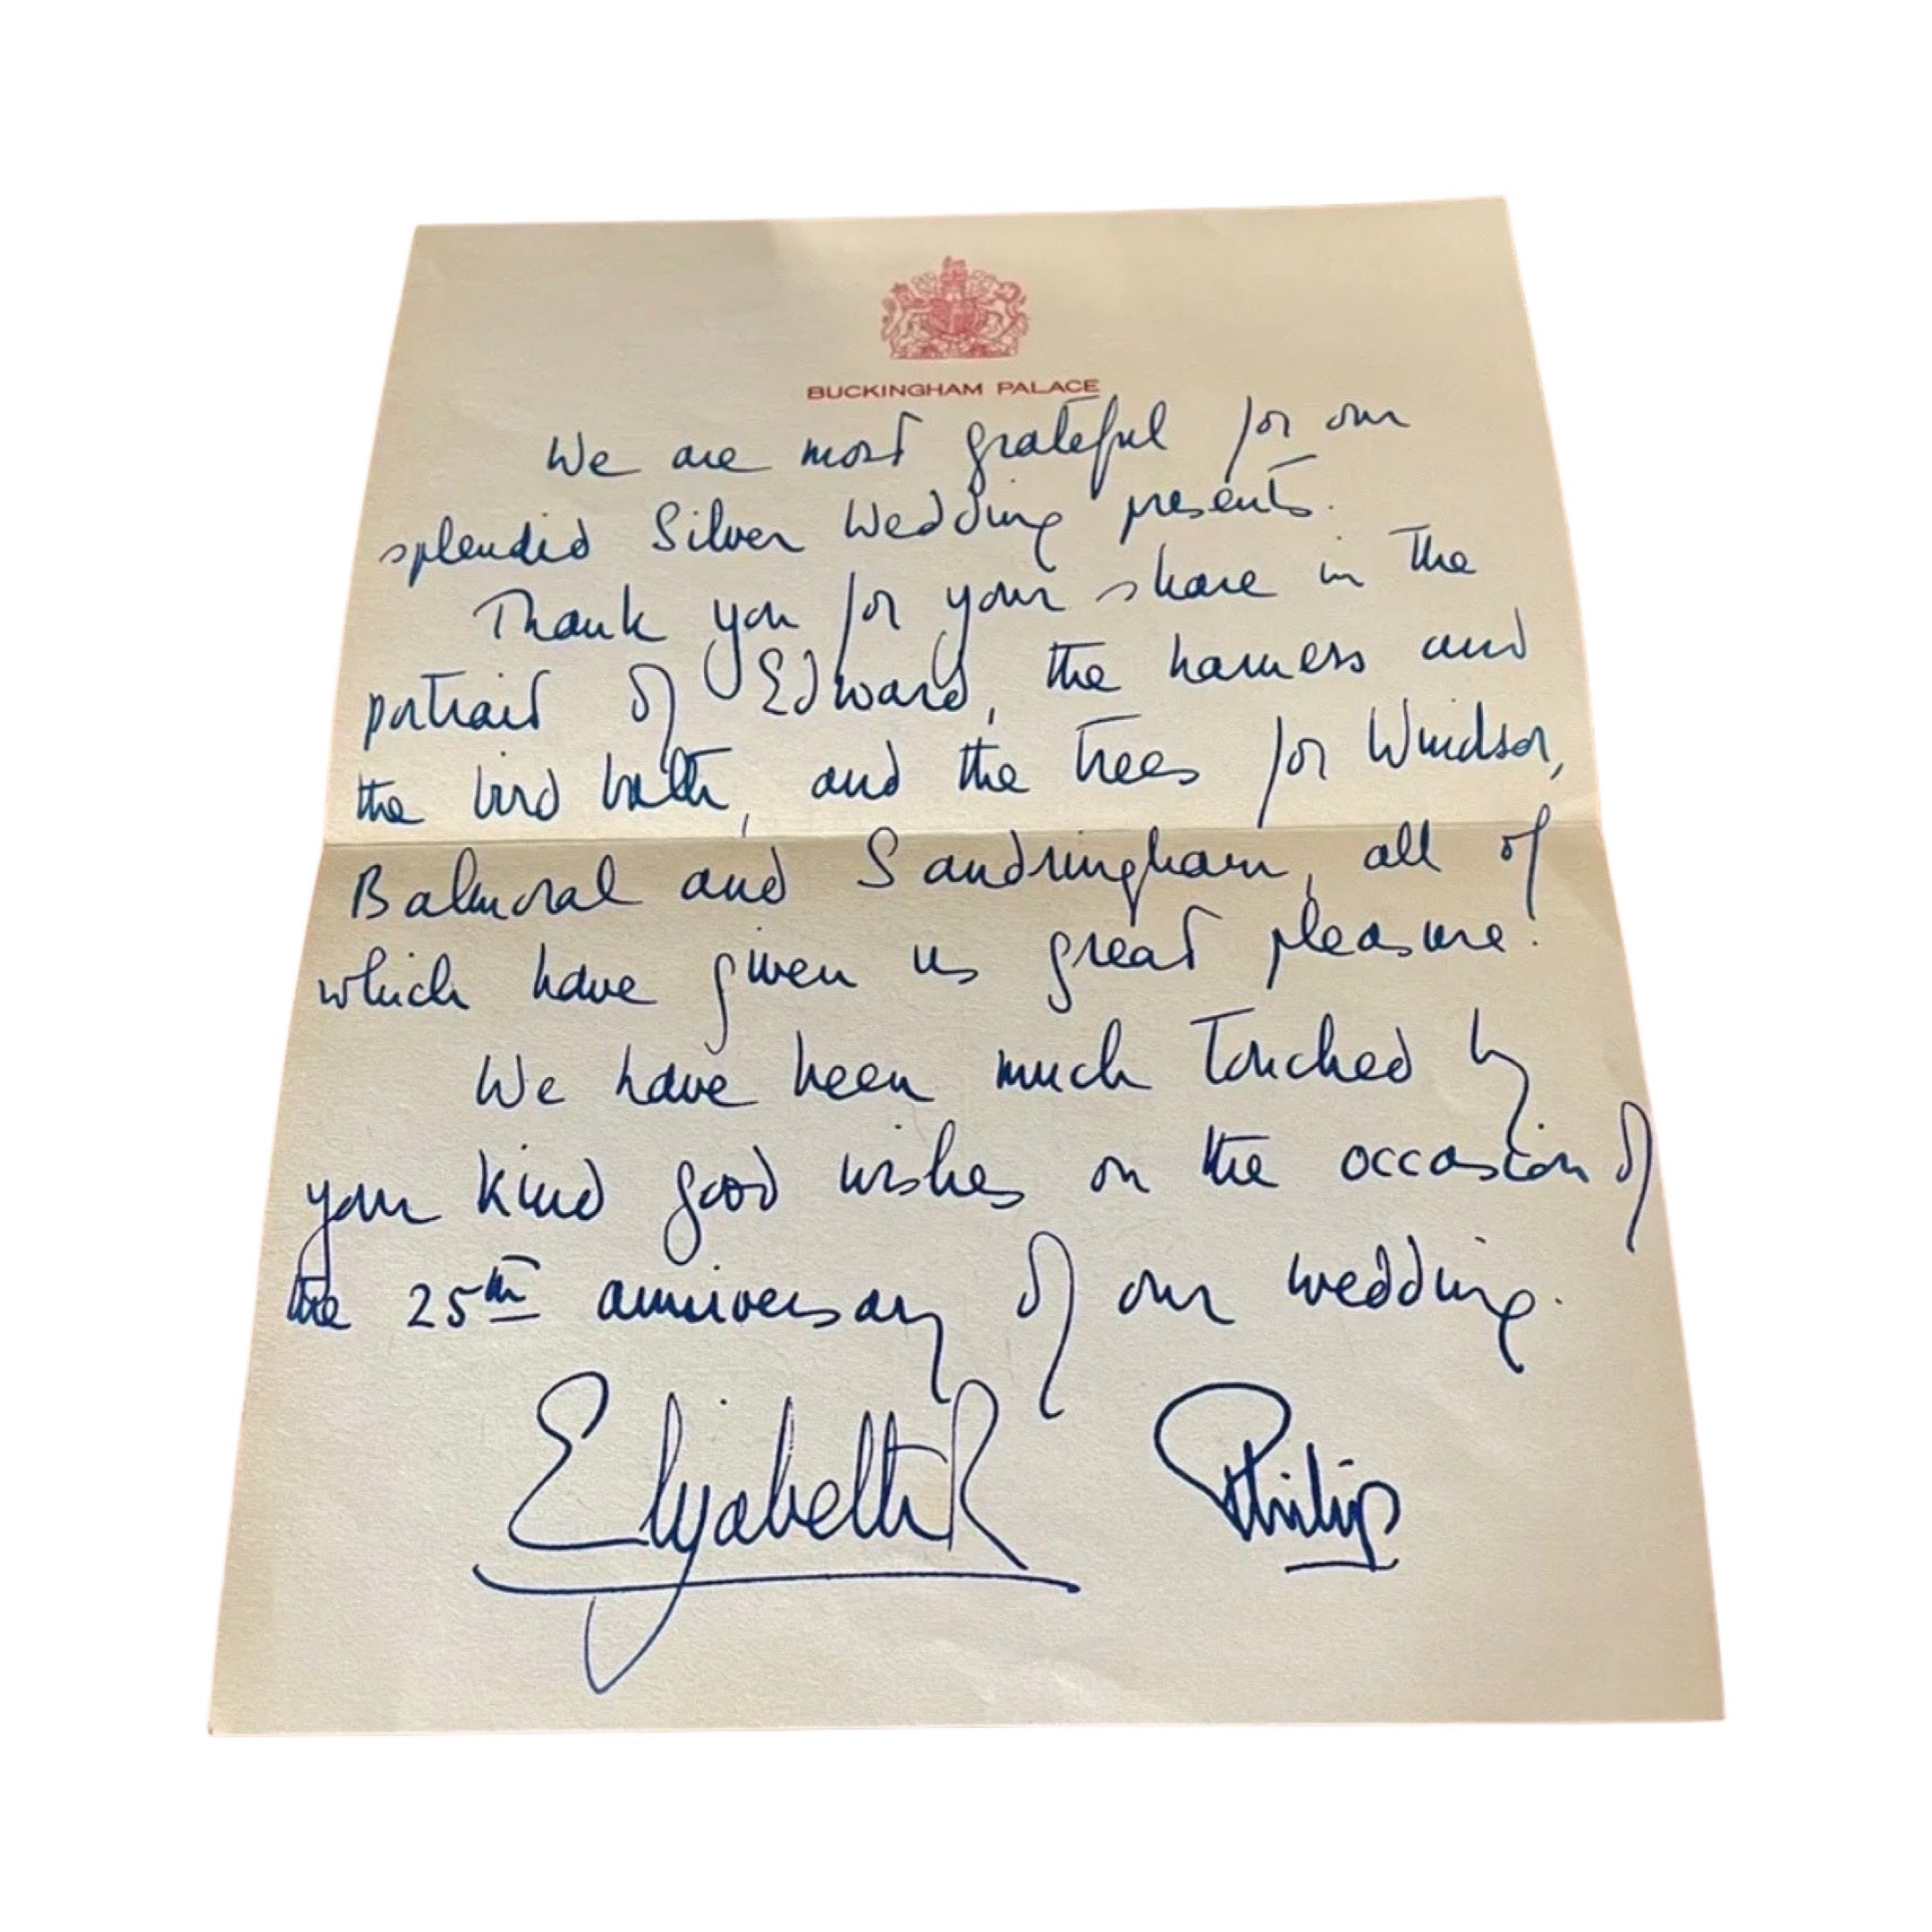 BUCKINGHAM PALACE
We are most grateful for our
splendid Silver Wedding presents.
Thank you for your share in the
portrait of Edward, the harness and
the bird bath, and the trees for Windsor,
Balmoral and Sandringham, all of
which have given us great pleasure.
We have been much touched by
your kind good wishes on the occasion of
the 25th anniversary of our wedding.
Elizabeth R Philip